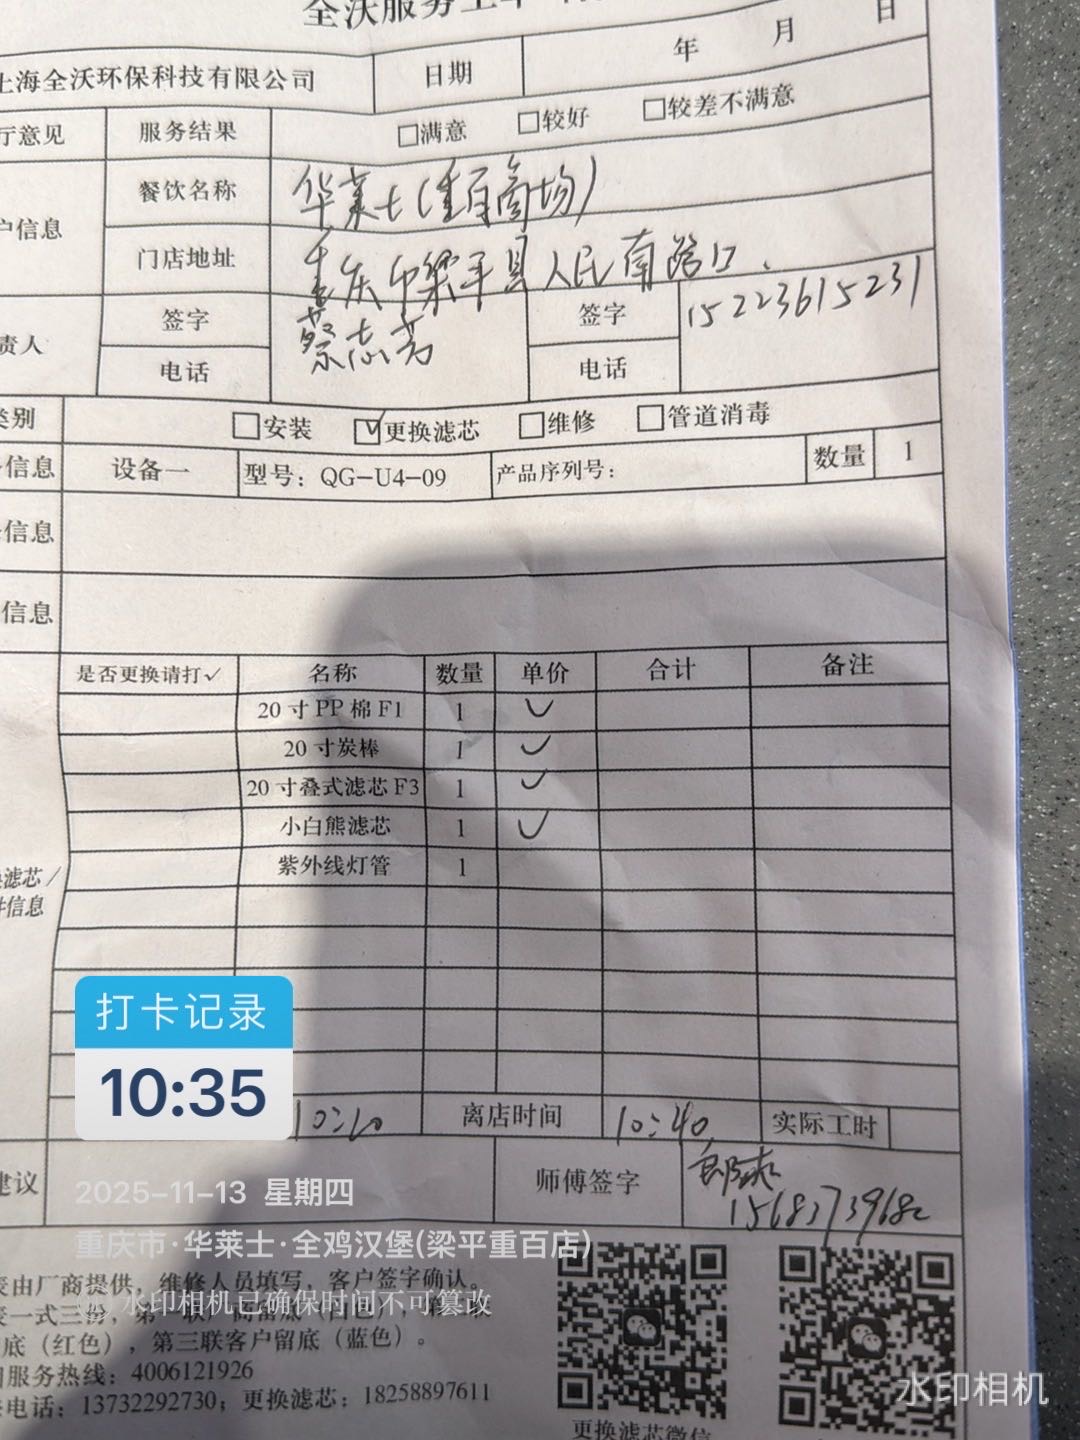 全沃服务工单
上海全沃环保科技有限公司 日期 年 月 日
厅意见 服务结果 □满意 □较好 □较差不满意
户信息 餐饮名称 华莱士(重百商场)
门店地址 重庆市梁平县人民南路口.
责人 签字 蔡志芳 签字 15223615231
电话 电话
类别 □安装 ☑更换滤芯 □维修 □管道消毒
信息 设备一 型号：QG-U4-09 产品序列号： 数量 1
信息
信息
是否更换请打✓ 名称 数量 单价 合计 备注
20寸PP棉F1 1 ✓
20寸炭棒 1 ✓
20寸叠式滤芯F3 1 ✓
小白熊滤芯 1 ✓
紫外线灯管 1
滤芯/
件信息
打卡记录
10:35
10:10 离店时间 10:40 实际工时
建议 师傅签字
2025-11-13 星期四
重庆市·华莱士·全鸡汉堡(梁平重百店)
表由厂商提供，维修人员填写，客户签字确认。
水印相机已确保时间不可篡改
表一式三份，第一联厂商留底（白色），第二联
底（红色），第三联客户留底（蓝色）。
服务热线：4006121926
电话：13732292730；更换滤芯：18258897611
更换滤芯微信
水印相机